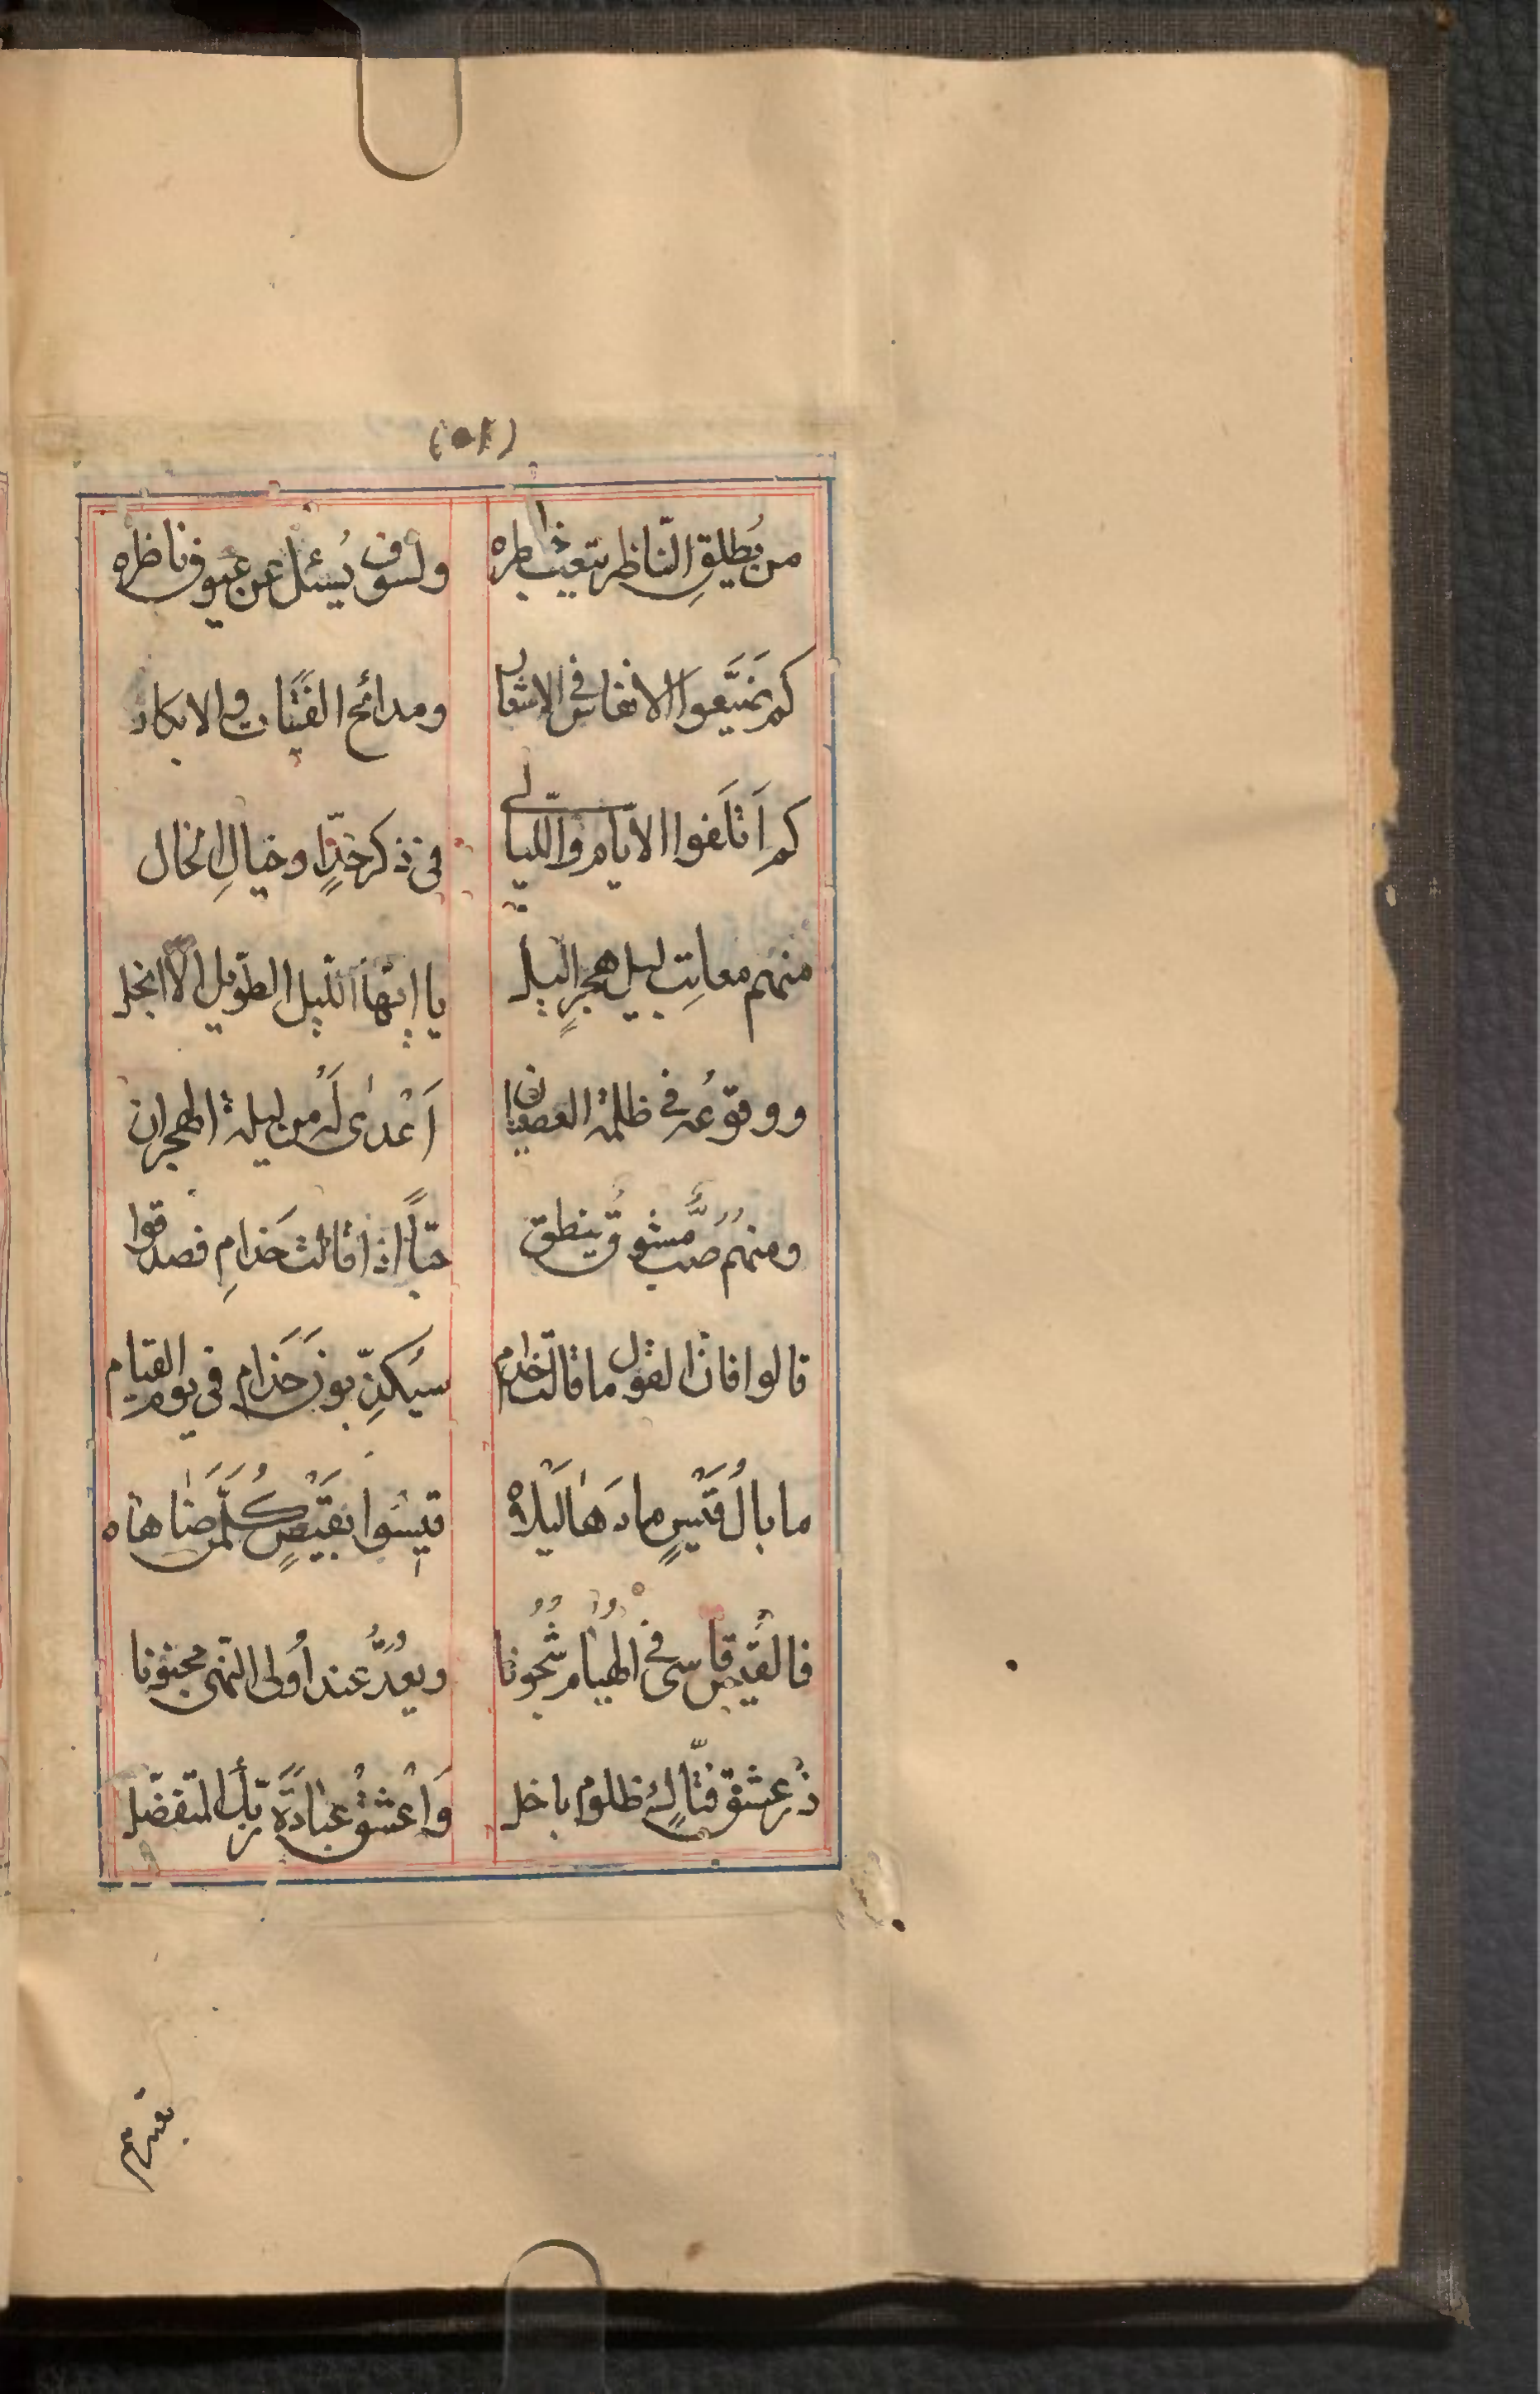 من يُطلقِ النّاظر يتعب خاطره ولسوف يُسئل عن عيوف ناظره
كم ضَيَّعوا الانفاس فى الاشعار ومدائح الفَتَيات والابكار
كم اَتلَفوا الايّام واللّيالى فى ذكر خدٍّ او خيالِ الخال
منهم معاتِب ليل هجرٍ اليل يا ايّها اللّيل الطّويل الاّ انجل
ووقوعُه فى ظلمة العصيان اَعْدىٰ لَهُ من ليلة الهجران
ومنهم صَبٌّ مشوقٌ ينطق حبّاً اذا قالت حَذامِ فصدقوا
قالوا فان القول ما قالت حذام سيكذّبون حَذام فى يوم القيام
ما بالُ قَيْسٍ ما دَهٰا لَيْلاهُ قيسوا بقَيْسٍ كُلَّ مَن ضٰاهاه
فالقيس قاسى فى الهُيٰام شُجُونا ويعُدُّ عند اُولى النّهى مجنونا
ذر عشق فتّاكٍ ظلوم باخل وَاعْشقْ عبٰادَةَ ربّك المتفضّل